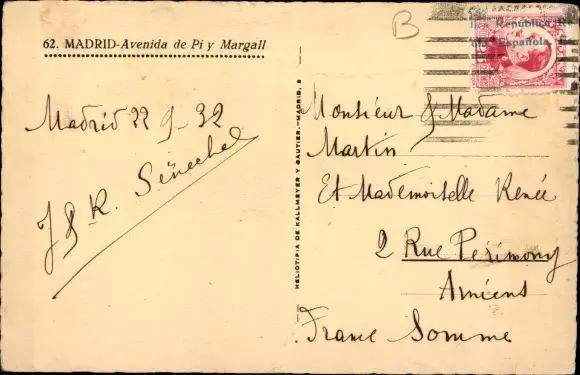 62. MADRID-Avenida de Pi y Margall
Madrid 22 9-32
J & R. Sénechal
HELIOTIPIA DE KALLMEYER Y GAUTIER.-MADRID.
B
República
Española
Monsieur & Madame
Martin
Et Mademoiselle Renée
2 Rue Perimony
Amiens
France Somme